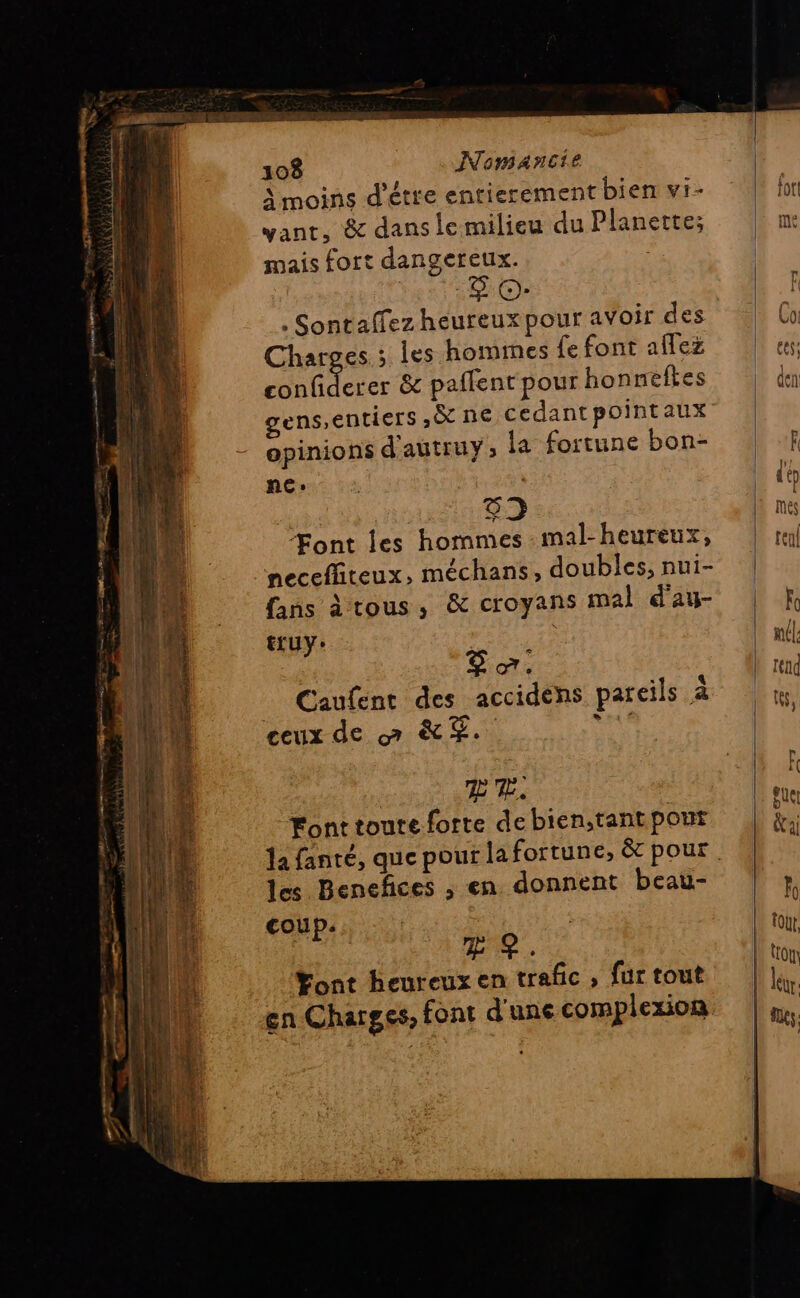 108 Nomancie
à moins d'étre entierement bien vi-
vant, & dans le milieu du Planette;
mais fort dangereux.
☿ ☉.
Sont aſſez heureux pour avoir des
Charges ; les hommes ſe font aſſez
conſiderer & paſſent pour honneſtes
gens, entiers , & ne cedant point aux
opinions d'autruy, la fortune bon-
ne.
☿ ☽
Font les hommes mal-heureux,
neceſſiteux, méchans, doubles, nui-
ſans à tous , & croyans mal d'au-
truy.
☿ ♂.
Cauſent des accidens pareils à
ceux de ♂ & ☿.
♃ ♃.
Font toute ſorte de bien, tant pour
la ſanté, que pour la fortune, & pour
les Benefices , en donnent beau-
coup.
♃ ♀.
Font heureux en trafic , ſur tout
en Charges, ſont d'une complexion